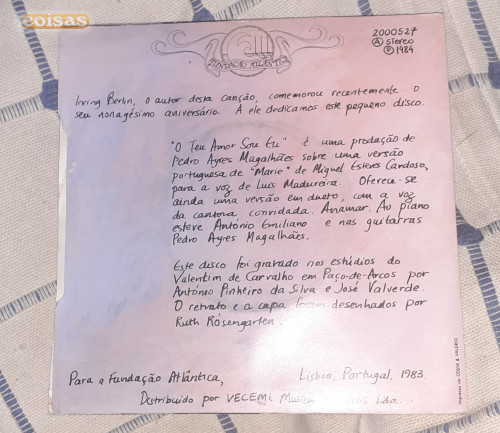 coisas
FUNDAÇÃO ATLÂNTICA
2000527
A stereo
P 1984
Irving Berlin, o autor desta canção, comemorou recentemente o
seu nonagésimo aniversário. A ele dedicamos este pequeno disco.
"O Teu Amor Sou Eu" é uma produção de
Pedro Ayres Magalhães sobre uma versão
portuguesa de "Marie" de Miguel Esteves Cardoso,
para a voz de Luis Madureira. Oferece-se
ainda uma versão em dueto, com a voz
da cantora convidada, Anamar. Ao piano
esteve António Emiliano e nas guitarras
Pedro Ayres Magalhães.
Este disco foi gravado nos estúdios do
Valentim de Carvalho em Paço-de-Arcos por
António Pinheiro da Silva e José Valverde.
O retrato e a capa foram desenhados por
Ruth Rosengarten.
Para a Fundação Atlântica, Lisboa, Portugal, 1983.
Distribuido por VECEMI, Lda.